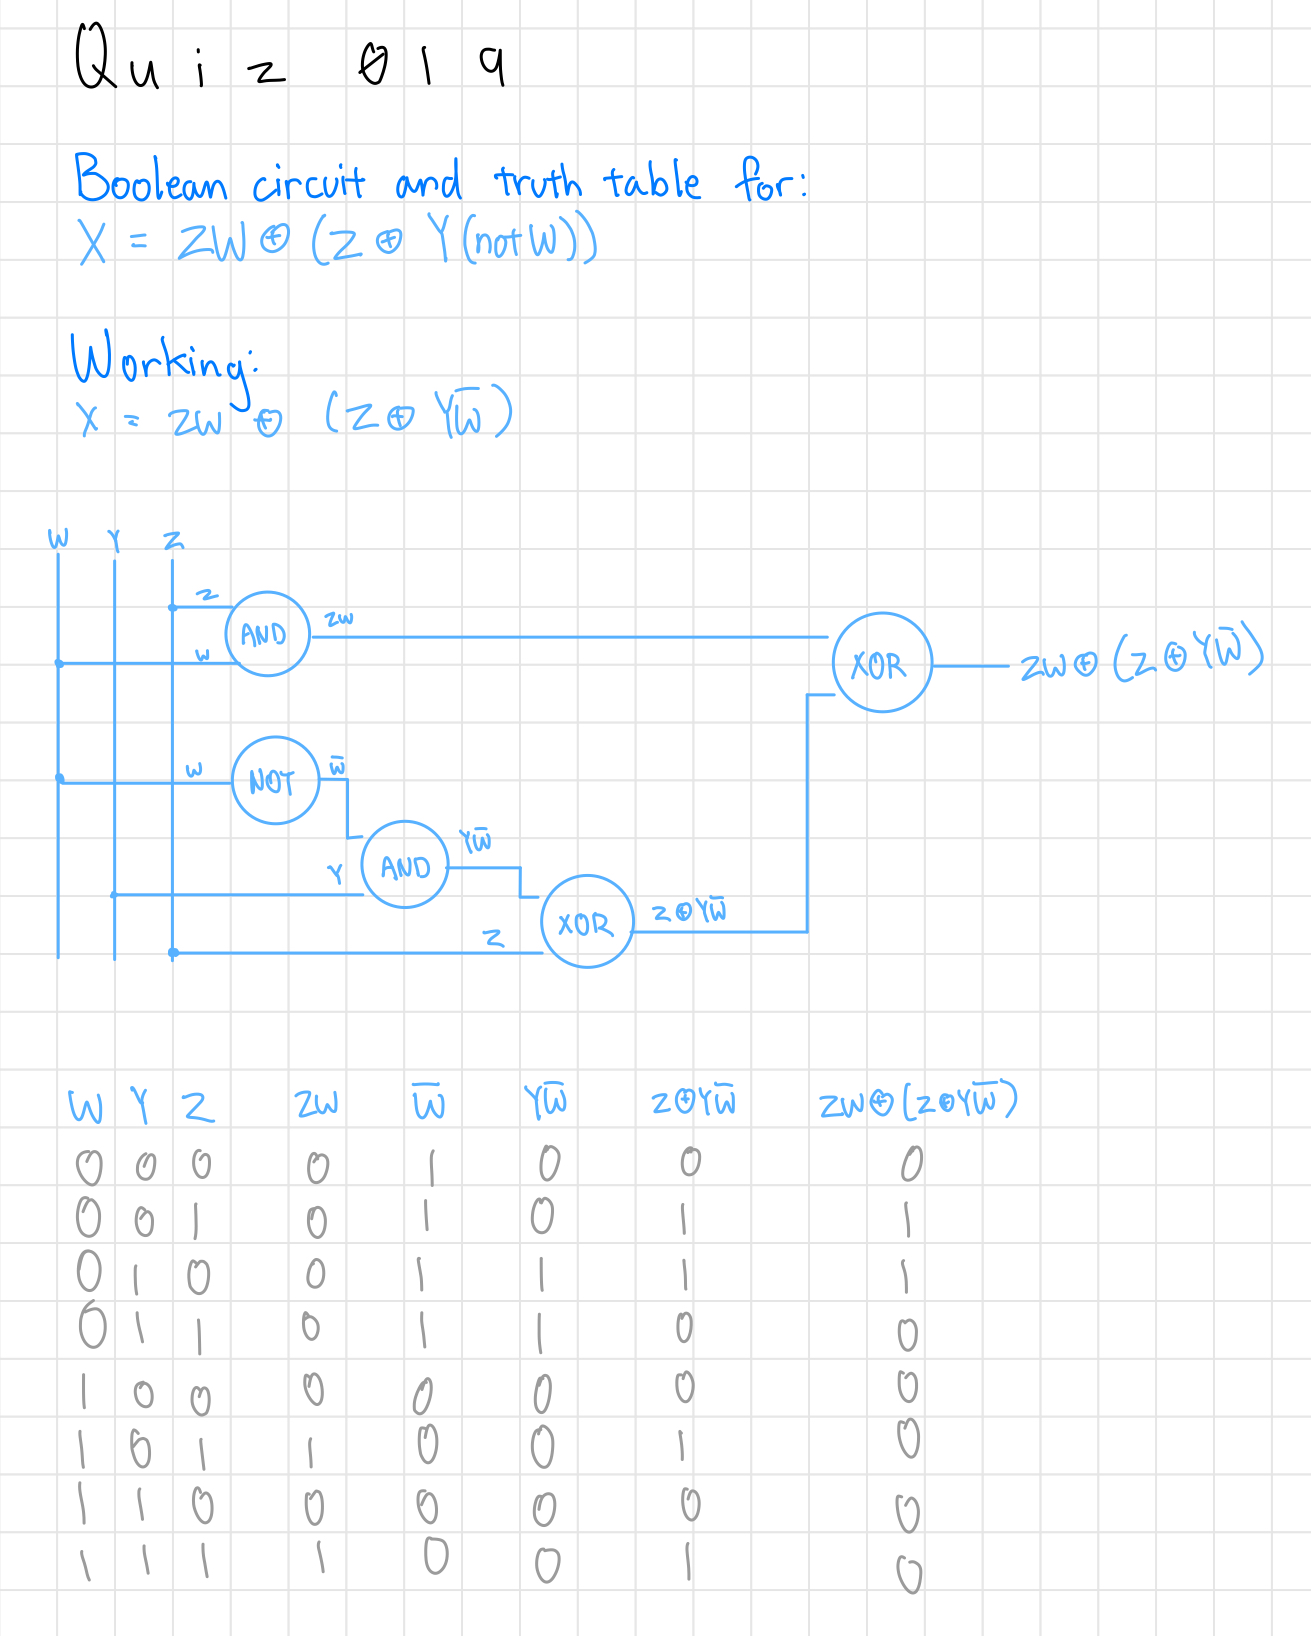 Quiz 019
Boolean circuit and truth table for:
X = ZW ⊕ (Z ⊕ Y(not W))
Working:
X = ZW ⊕ (Z ⊕ YW̅)
W Y Z
Z
AND
ZW
W
XOR
ZW ⊕ (Z ⊕ YW̅)
W
NOT
W̅
Y
AND
YW̅
Z
XOR
Z ⊕ YW̅
W Y Z ZW W̅ YW̅ Z⊕YW̅ ZW⊕(Z⊕YW̅)
0 0 0 0 1 0 0 0
0 0 1 0 1 0 1 1
0 1 0 0 1 1 1 1
0 1 1 0 1 1 0 0
1 0 0 0 0 0 0 0
1 0 1 1 0 0 1 0
1 1 0 0 0 0 0 0
1 1 1 1 0 0 1 0